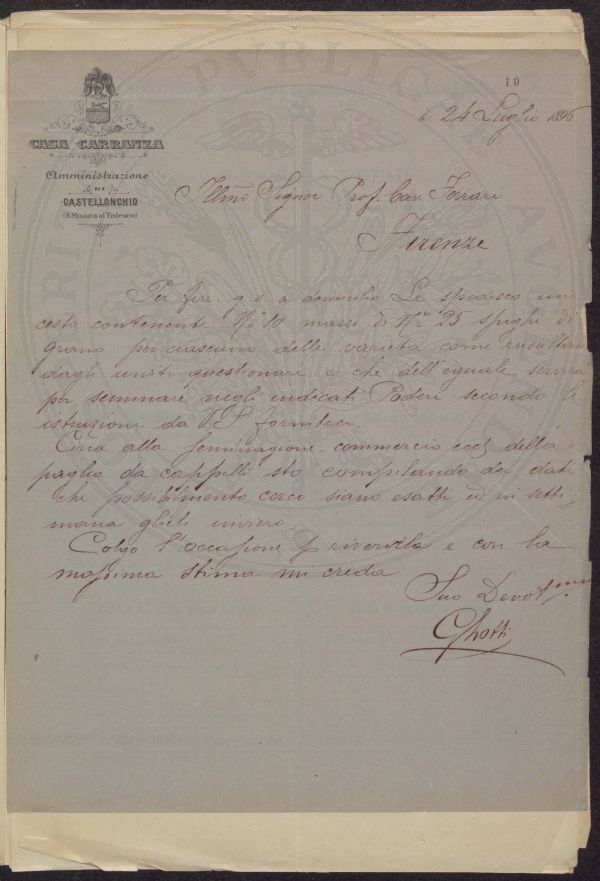 10
CASA CARRANZA
Amministrazione
DI
CASTELLONCHIO
(S. Miniato al Tedesco)
24 Luglio 1896
Illmo Signor Prof. Cav. Ferrari
Firenze
Per ferr. g. v. a domicilio Le spedisco un
cesto contenente No 10 mazzi di No 25 spighe di
grano per ciascuno delle varietà come risultan
dagli uniti questionari e che dell'eguale
per seminare negli indicati Poderi secondo le
istruzioni da V.S. fornitici
Circa alla seminagione, commercio ecc della
paglia da cappelli sto compilando dei dati
che possibilmente cerco siano esatti ed in setti-
mana glieli invierò
Colgo l'occasione p riverirla e con la
massima stima mi creda
Suo Devotmo